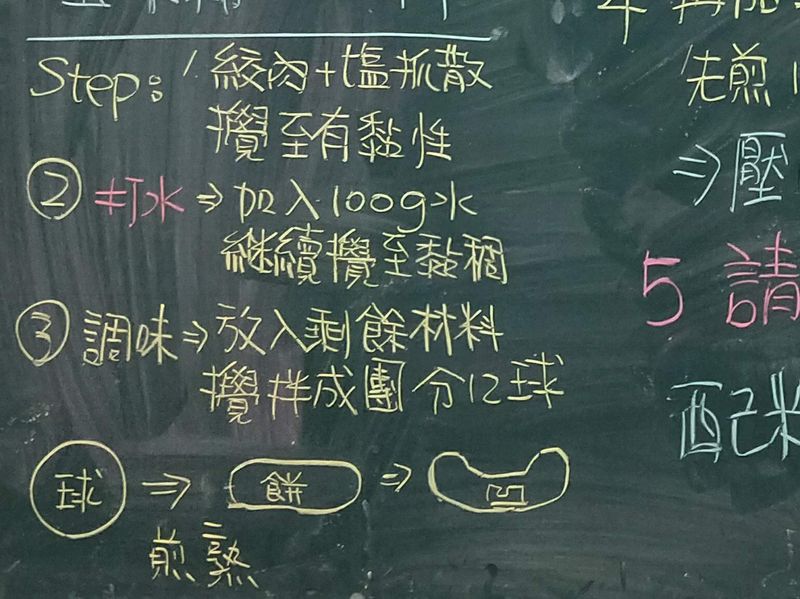 Step: 1 絞肉+塩抓散
攪至有黏性
② 打水⇒加入100g水
繼續攪至黏稠
③ 調味⇒放入剩餘材料
攪拌成團 分12球
球 ⇒ 餅 ⇒ 凹
煎熟
先煎
⇒壓
5 請
配